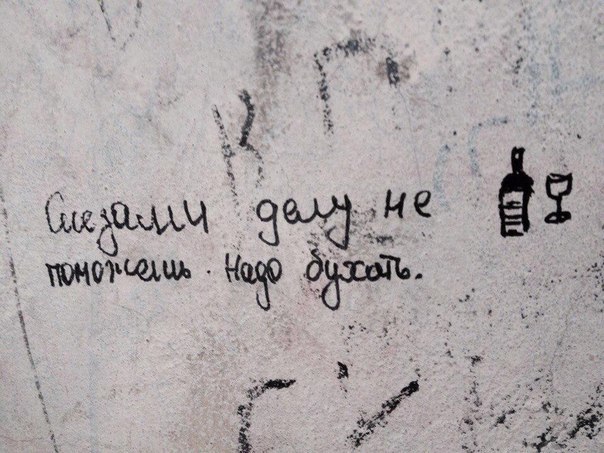 Слезами делу не
поможешь. Надо бухать.